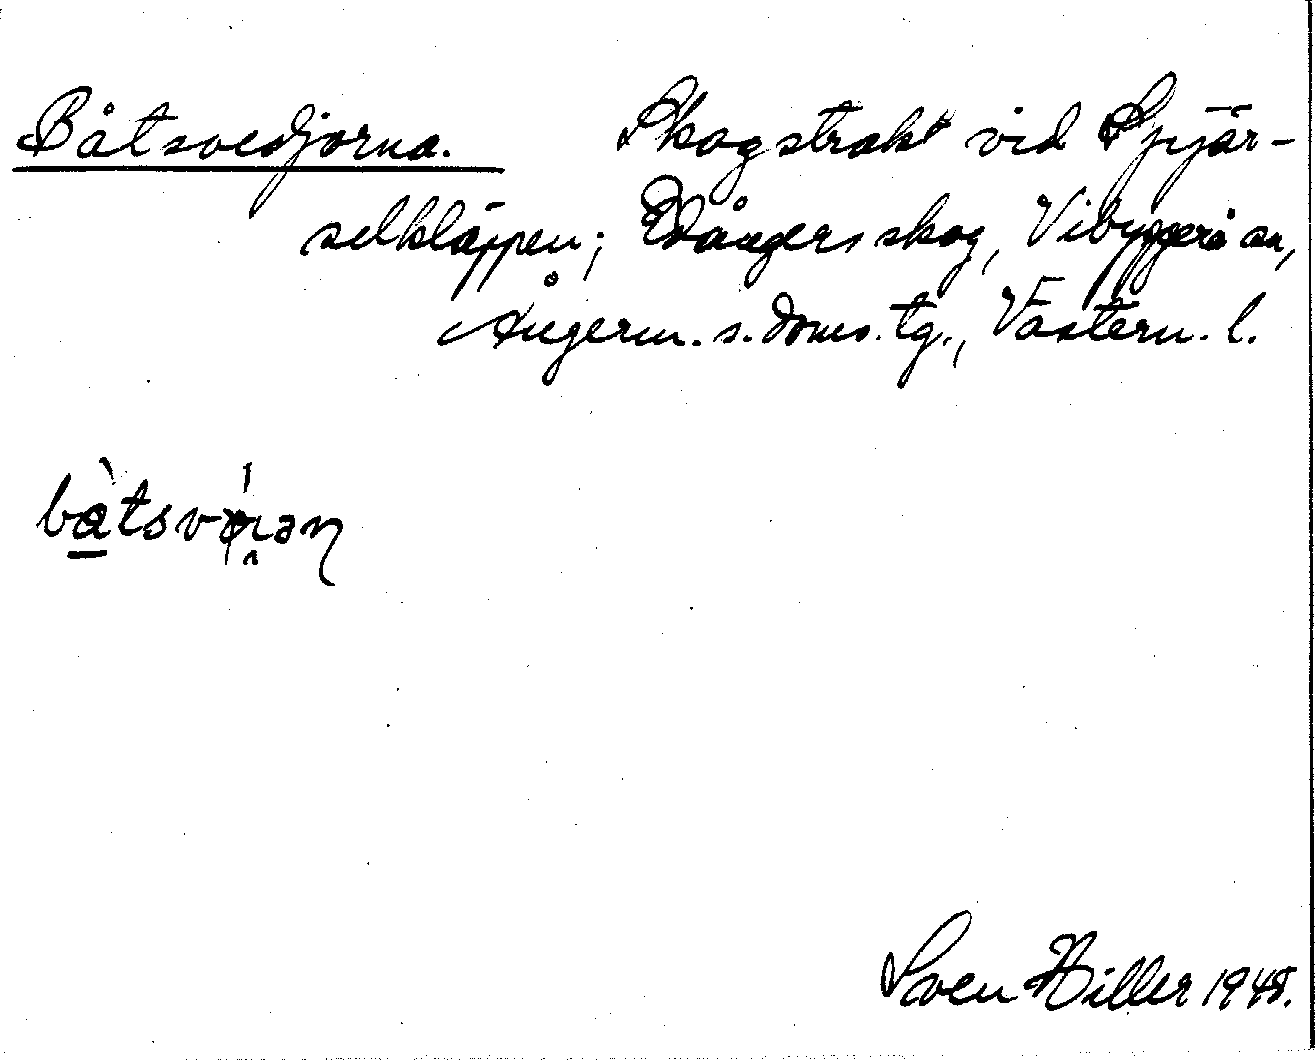 Båtsvedjorna. Skogstrakt vid Spjär-
selkläppen; Vångers skog, Vibyggerå sn,
Ångerm. s. doms. tg., Västern. l.
Sven Hiller 1948.